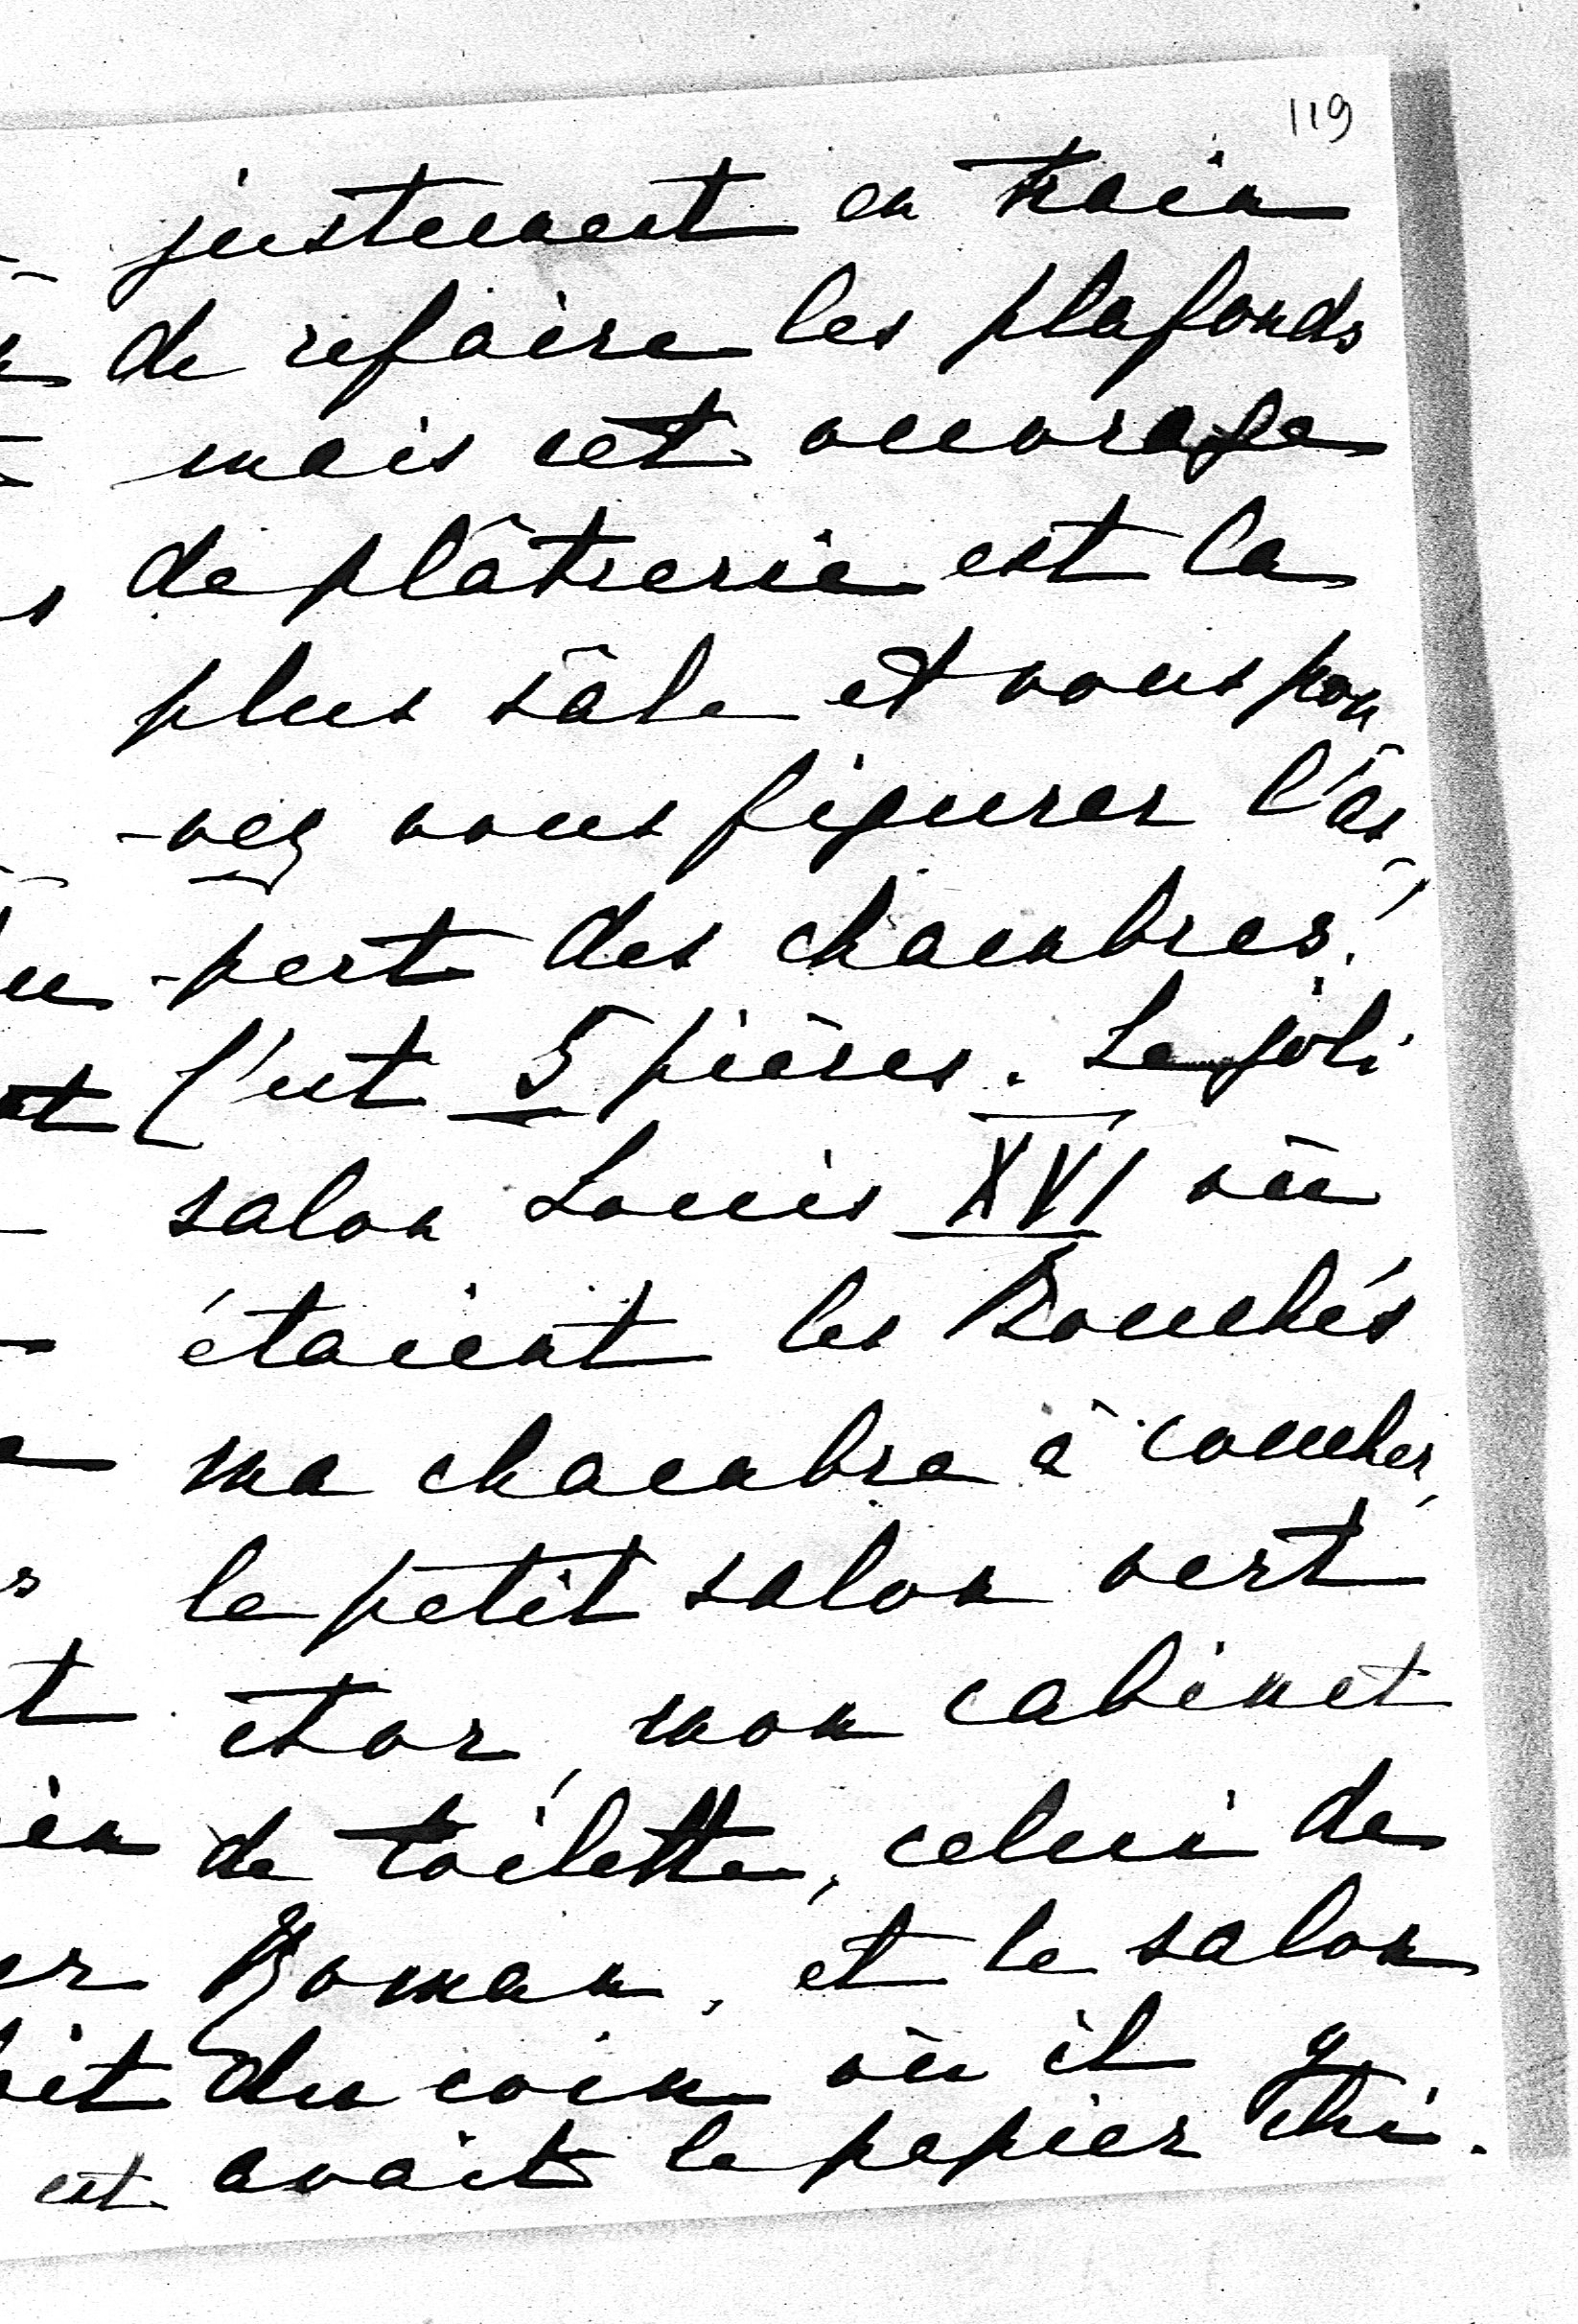 119
justement en train
de refaire les plafonds
mais cet ouvrage
de plâtrerie est la
plus sâle et vous pou
-vez vous figurer l'as
-pect des chambres!
C'est 5 pièces. Le joli
salon Louis XVI où
étaient les Bouchés
ma chambre à coucher,
le petit salon vert
et or, mon cabinet
de toilette, celui de
Roman, et le salon
du coin où il y
avait le papier chi-
est